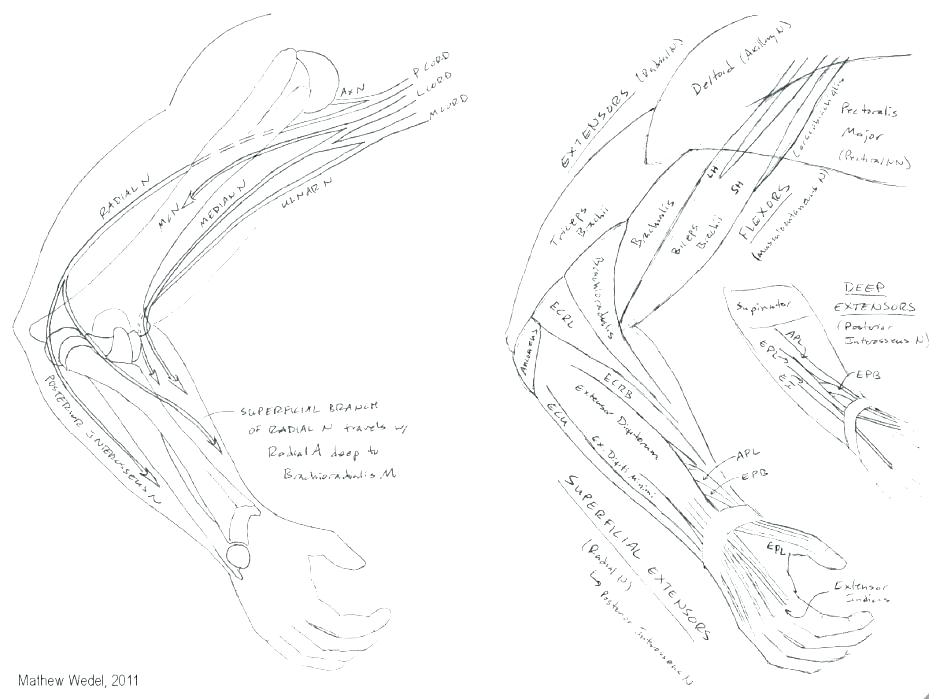 AxN
P CORD
L CORD
M CORD
RADIAL N
McN
MEDIAN N
ULNAR N
POSTERIOR INTEROSSEUS N
SUPERFICIAL BRANCH
OF RADIAL N travels w/
Radial A deep to
Brachioradialis M
Mathew Wedel, 2011
EXTENSORS (Radial N)
Deltoid (Axillary N)
Pectoralis
Major
(Pectoral NN)
Coracobrachialis
LH
SH
Triceps
Brachii
Brachialis
Biceps
Brachii
FLEXORS
(Musculocutaneous N)
Brachioradialis
ECRL
Anconeus
ECRB
Extensor Digitorum
ECU
Ex. Digiti Minimi
APL
EPB
SUPERFICIAL EXTENSORS
(Radial N)
↳ Posterior Interosseus N
EPL
Extensor
Indicis
Supinator
DEEP
EXTENSORS
(Posterior
Interosseus N)
APL
EPL
EI
EPB